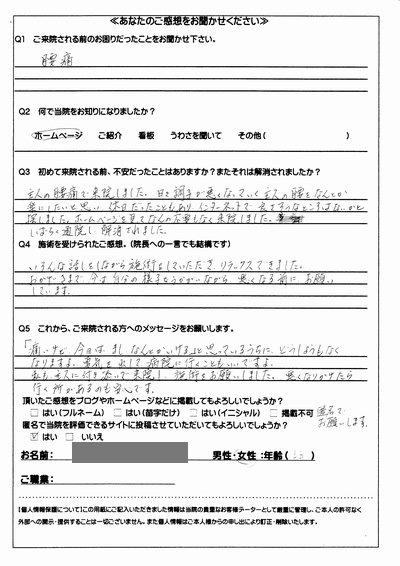 ≪あなたのご感想をお聞かせください≫
Q1 ご来院される前のお困りだったことをお聞かせ下さい。
腰痛
Q2 何で当院をお知りになりましたか？
ホームページ ご紹介 看板 うわさを聞いて その他( )
Q3 初めて来院される前、不安だったことはありますか？またそれは解消されましたか？
主人の腰痛で来院しました。日に日に調子が悪くなっていく主人の腰をなんとか
楽にしたいと思い、休日だったこともあり インターネットで 良さそうなところはないかと
探しました。ホームページを見てなんの不安もなく来院しました。
しばらく通院し 解消されました。
Q4 施術を受けられたご感想。（院長への一言でも結構です）
いろんな話しをしながら施術をしていただき、リラックスできました。
おかげさまで 今は自分の様子をうかがいながら 悪くなる前に お願い
しています。
Q5 これから、ご来院される方へのメッセージをお願いします。
「痛いけど 今日は まし なんとかいける」と思っているうちに どうしようもなく
なりますよ。勇気を出して病院に行くこともいいですよ。
私も 主人に付き添いで来院し、施術をお願いしました。悪くなりかけたら
行く所があるのも安心です。
頂いたご感想をブログやホームページなどに掲載してもよろしいでしょうか？
□ はい（フルネーム） □ はい（苗字だけ） □ はい（イニシャル） □ 掲載不可 匿名で
お願いします。
匿名で当院を評価できるサイトに投稿させていただいてもよろしいでしょうか？
☑ はい □ いいえ
お名前： 男性・女性：年齢( )
ご職業：
【個人情報保護について】この用紙にご記入いただきました情報は当院の貴重なお客様データーとして厳重に管理し、ご本人の許可なく
外部への開示・提供することは一切ございません。また個人情報はご本人様からの申し出により訂正・削除いたします。